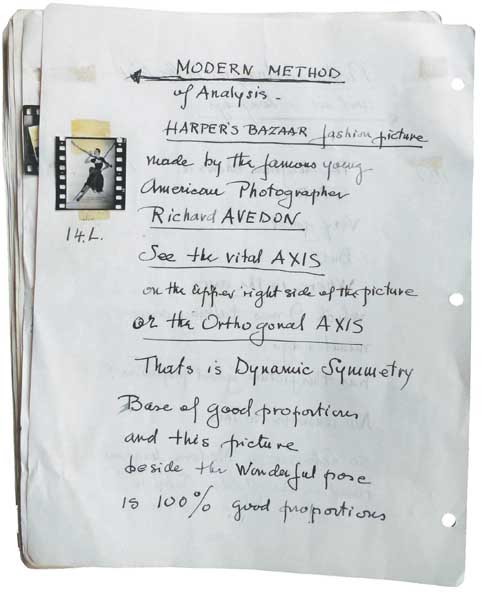 MODERN METHOD
of Analysis -
HARPER'S BAZAAR fashion picture
made by the famous young
American Photographer
Richard AVEDON
14.L.
See the vital AXIS
on the upper right side of the picture
or the Orthogonal AXIS
Thats is Dynamic Symmetry
Base of good proportions
and this picture
beside the Wonderful pose
is 100% good proportions